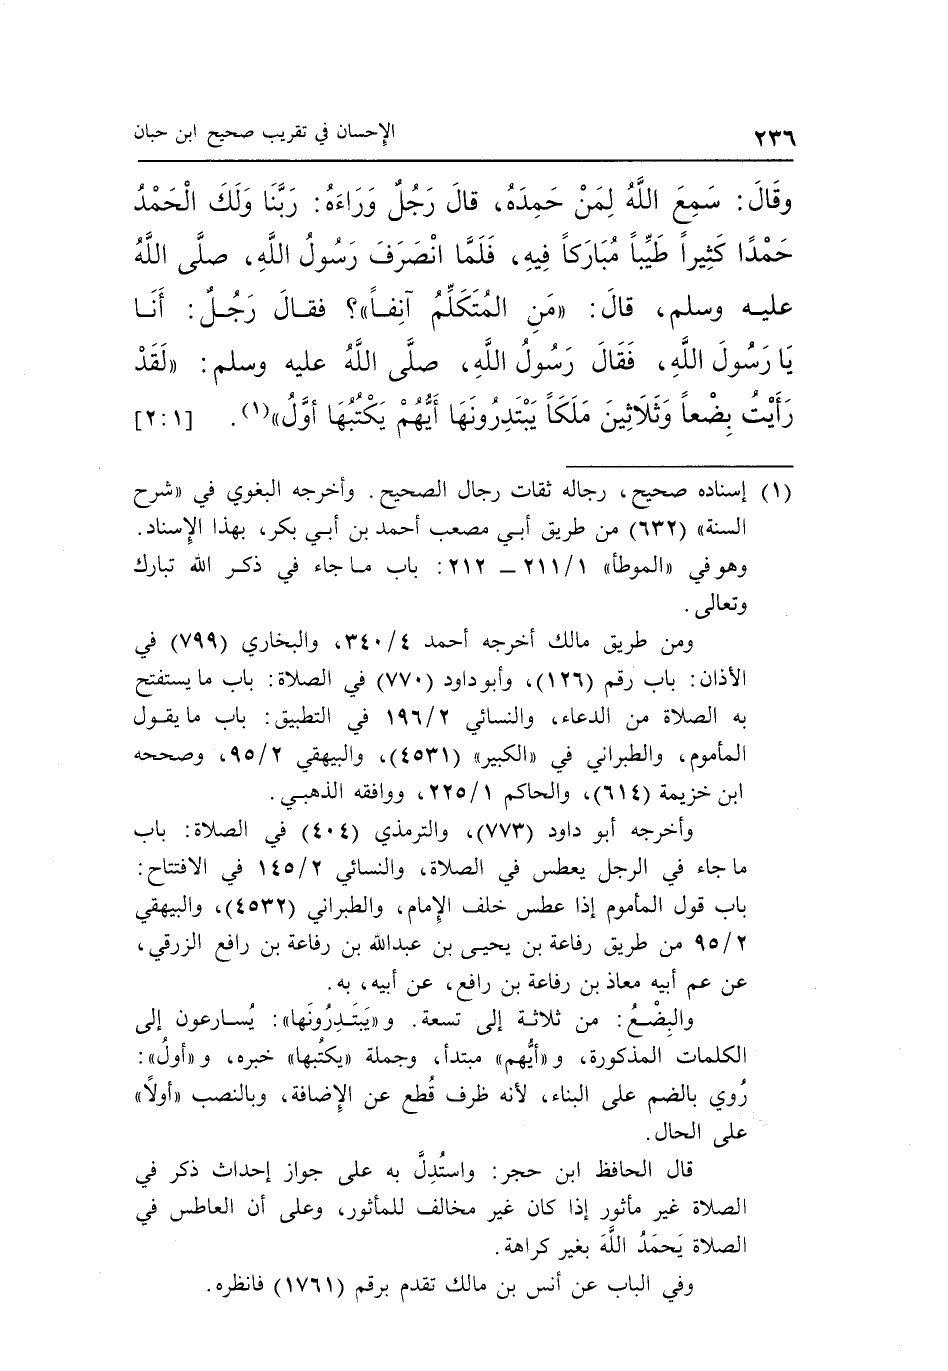 ٢٣٦ الإحسان في تقريب صحيح ابن حبان
وقَالَ: سَمِعَ اللَّهُ لِمَنْ حَمِدَهُ، قالَ رَجُلٌ وَرَاءَهُ: رَبَّنَا وَلَكَ الْحَمْدُ
حَمْدًا كَثِيراً طَيِّباً مُبَارَكاً فِيهِ، فَلَمَّا انْصَرَفَ رَسُولُ اللَّهِ، صلَّى اللَّهُ
عليه وسلم، قالَ: «مَنِ المُتَكَلِّمُ آنِفاً»؟ فقالَ رَجُلٌ: أَنَا
يَا رَسُولَ اللَّهِ، فَقَالَ رَسُولُ اللَّهِ، صلَّى اللَّهُ عليه وسلم: «لَقَدْ
رَأَيْتُ بِضْعاً وَثَلَاثِينَ مَلَكاً يَبْتَدِرُونَهَا أَيُّهُمْ يَكْتُبُهَا أوَّلُ»(١). [٢:١]
(١) إسناده صحيح، رجاله ثقات رجال الصحيح. وأخرجه البغوي في «شرح
السنة» (٦٣٢) من طريق أبي مصعب أحمد بن أبي بكر، بهذا الإسناد.
وهو في «الموطأ» ٢١١/١ ــ ٢١٢: باب ما جاء في ذكر الله تبارك
وتعالى.
ومن طريق مالك أخرجه أحمد ٣٤٠/٤، والبخاري (٧٩٩) في
الأذان: باب رقم (١٢٦)، وأبو داود (٧٧٠) في الصلاة: باب ما يستفتح
به الصلاة من الدعاء، والنسائي ١٩٦/٢ في التطبيق: باب ما يقول
المأموم، والطبراني في «الكبير» (٤٥٣١)، والبيهقي ٩٥/٢، وصححه
ابن خزيمة (٦١٤)، والحاكم ٢٢٥/١، ووافقه الذهبي.
وأخرجه أبو داود (٧٧٣)، والترمذي (٤٠٤) في الصلاة: باب
ما جاء في الرجل يعطس في الصلاة، والنسائي ١٤٥/٢ في الافتتاح:
باب قول المأموم إذا عطس خلف الإمام، والطبراني (٤٥٣٢)، والبيهقي
٩٥/٢ من طريق رفاعة بن يحيى بن عبدالله بن رفاعة بن رافع الزرقي،
عن عم أبيه معاذ بن رفاعة بن رافع، عن أبيه، به.
والبِضْعُ: من ثلاثة إلى تسعة. و«يَبتَدِرُونَها»: يُسارعون إلى
الكلمات المذكورة، و«أيُّهم» مبتدأ، وجملة «يكتُبها» خبره، و«أولُ»:
رُوي بالضم على البناء، لأنه ظرف قُطع عن الإضافة، وبالنصب «أولاً»
على الحال.
قال الحافظ ابن حجر: واستُدِلَّ به على جواز إحداث ذكر في
الصلاة غير مأثور إذا كان غير مخالف للمأثور، وعلى أن العاطس في
الصلاة يَحمَدُ اللَّهَ بغير كراهة.
وفي الباب عن أنس بن مالك تقدم برقم (١٧٦١) فانظره.